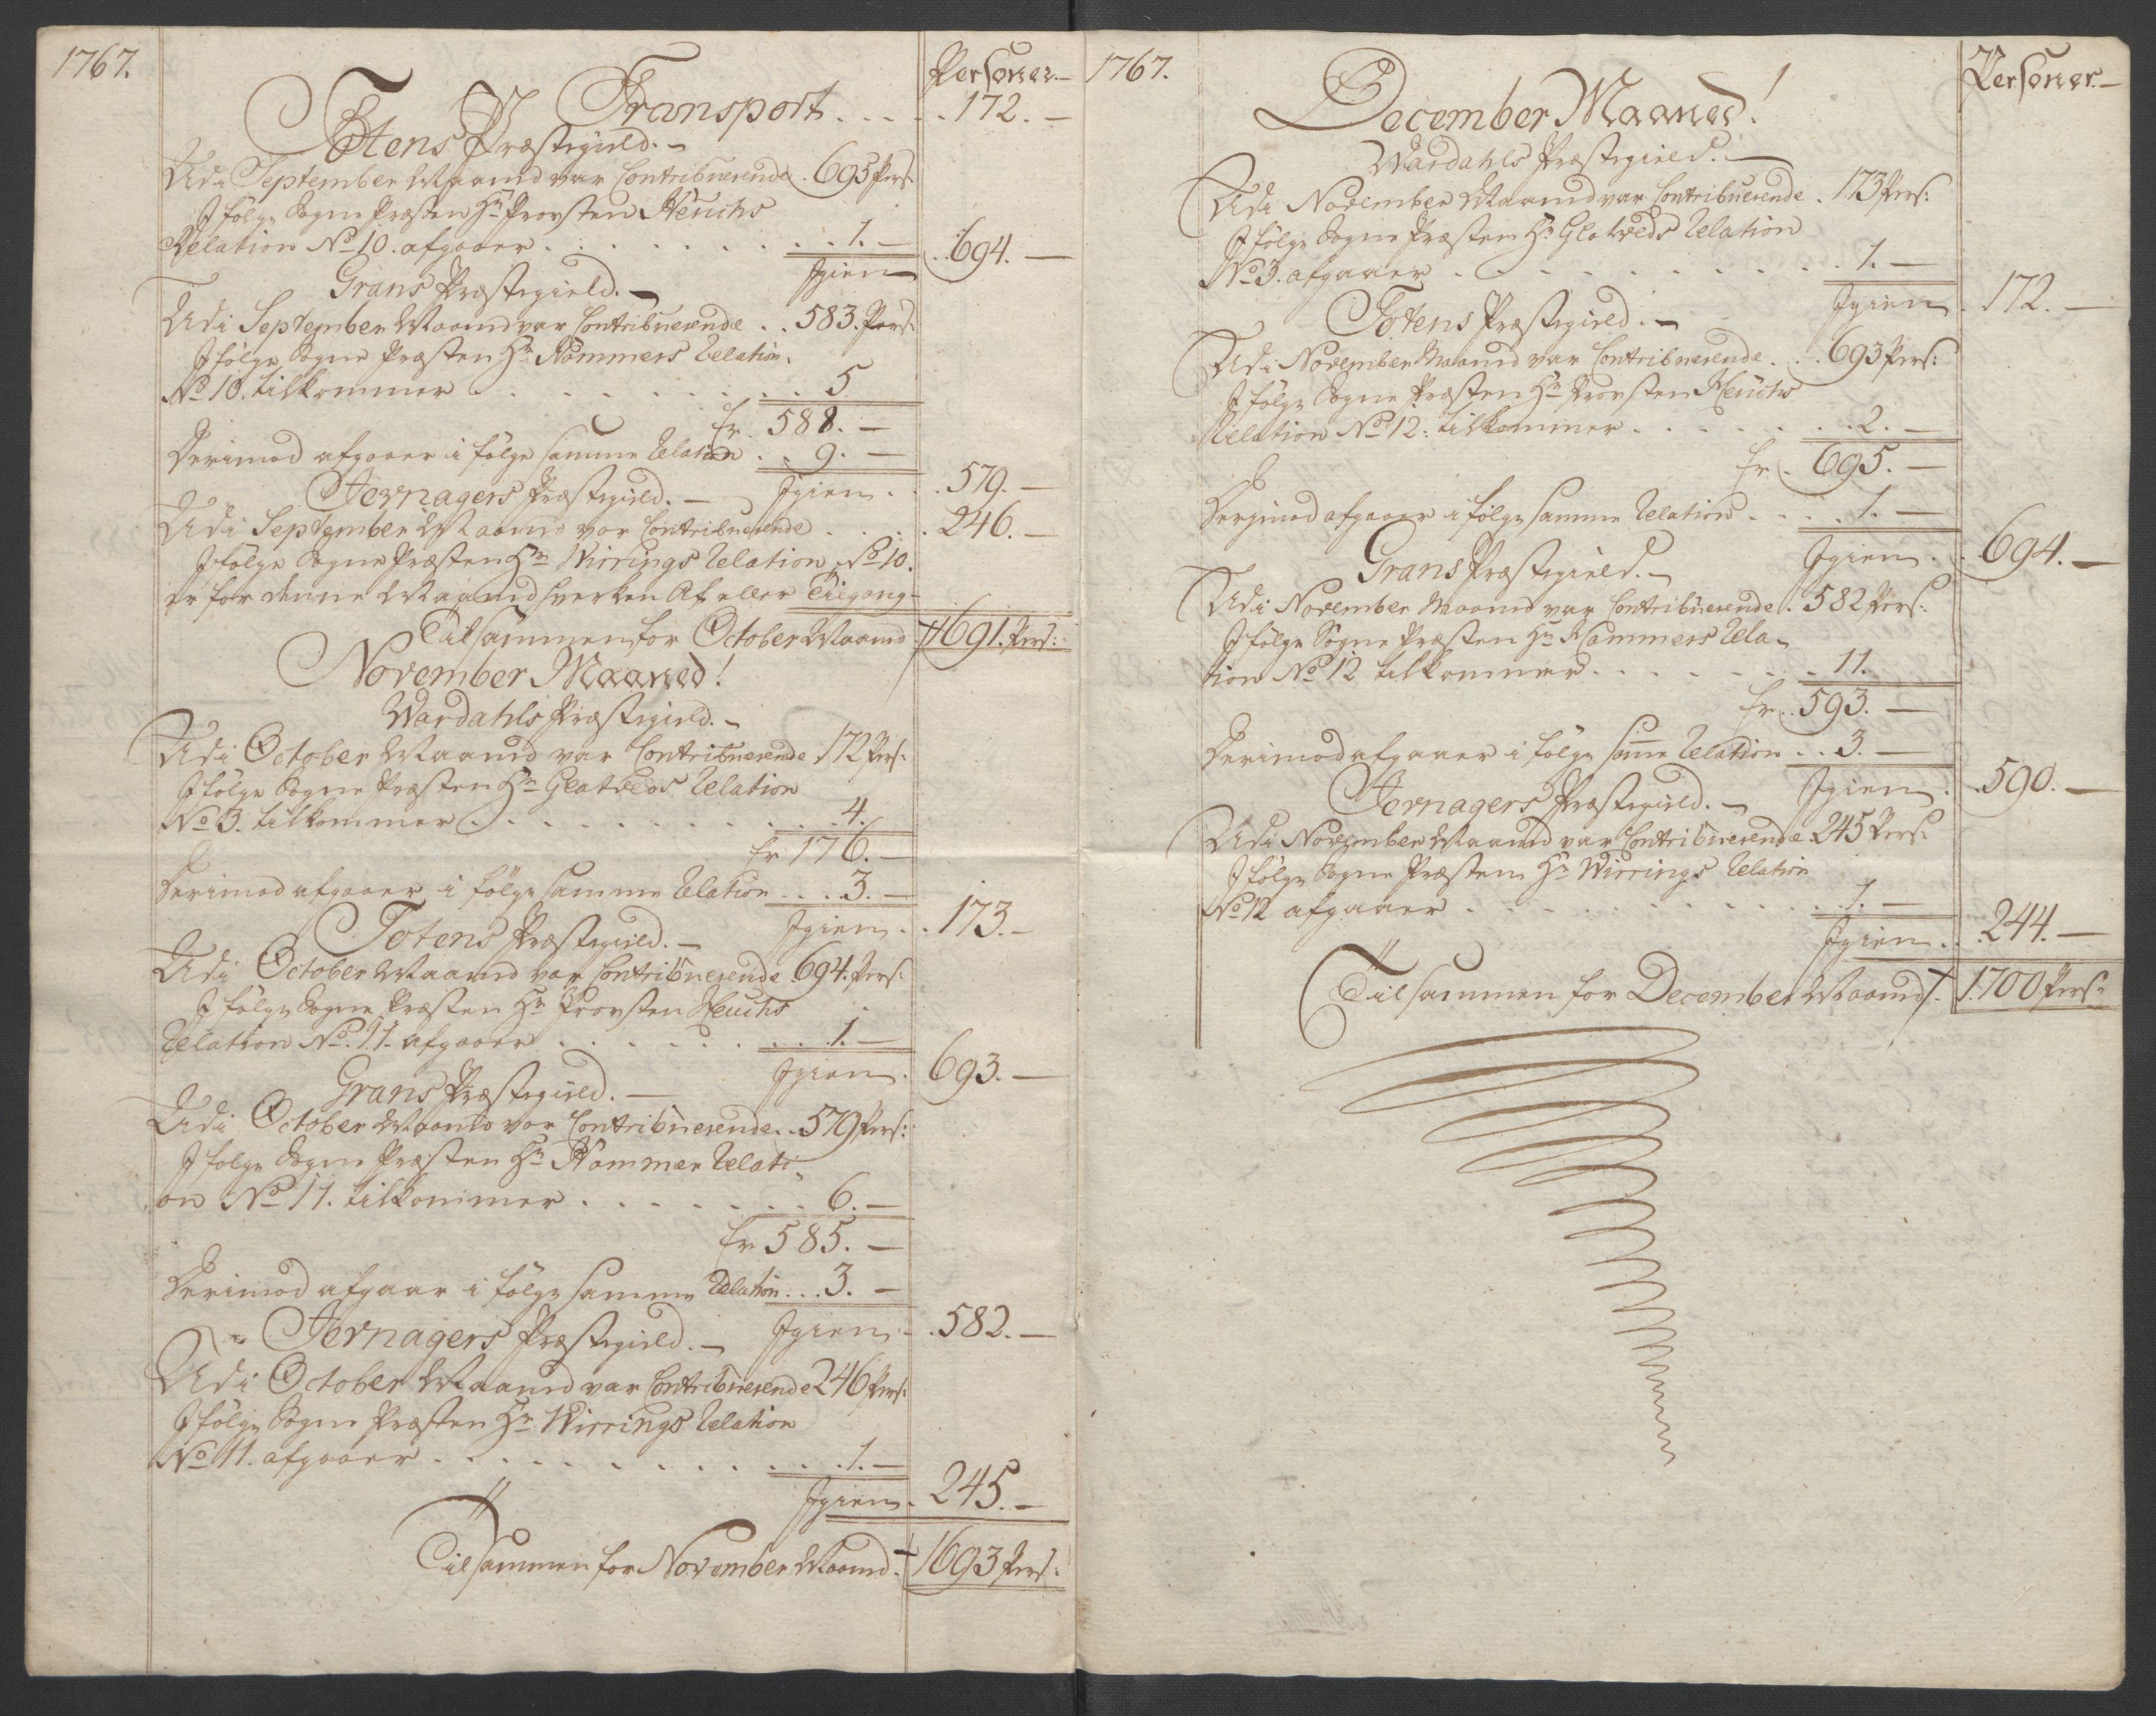 1767.
Personer.
Transport . . . . 172. —
Totens Præstegield. —
Udi September Maaned var Contribuerende . 695 Pers:
I følge Sogne Præsten Hr Provsten Heuchs
Relation No 10. afgaaer . . . . . . . . 1. —
Igien . . 694. —
Grans Præstegield. —
Udi September Maaned var Contribuerende . . 583. Pers:
I følge Sogne Præsten Hr Hammers Relation
No 10. tilkommer . . . . . . . . 5
Er. 588. —
Derimod afgaaer i følge samme Relation . . 9. —
Igien . . 579. —
Jevnagers Præstegield. —
Udi September Maaned var Contribuerende . . . . 246. —
I følge Sogne Præsten Hr Wirrings Relation No 10.
er for denne Maaned hverken Af eller Tilgang
Tilsammen for October Maaned 1691. Pers:
November Maaned!
Wardahls Præstegield. —
Udi October Maaned var Contribuerende 172 Pers:
I følge Sogne Præsten Hr Glatveds Relation
No 3. tilkommer . . . . . . . . 4.
Er 176. —
Derimod afgaaer i følge samme Relation . . . 3. —
Igien . . 173. —
Totens Præstegield. —
Udi October Maaned var Contribuerende . 694. Pers:
I følge Sogne Præsten Hr Provsten Heuchs
Relation No. 11. afgaaer . . . . . . . . 1. —
Igien . 693. —
Grans Præstegield. —
Udi October Maaned var Contribuerende . . 579 Pers:
I følge Sogne Præsten Hr Hammer Relati-
on No 11. tilkommer . . . . . . . . 6. —
Er 585. —
Derimod afgaar i følge samme Relation . . . 3. —
Igien . . 582. —
Jevnagers Præstegield. —
Udi October Maaned var Contribuerende 246 Pers:
I følge Sogne Præsten Hr Wirrings Relation
No 11. afgaaer . . . . . . . . 1. —
Igien . 245. —
Tilsammen for November Maaned . 1693 Pers:
1767.
Personer. —
December Maaned!
Wardahls Præstegield. —
Udi November Maaned var Contribuerende . 173 Pers:
I følge Sogne Præsten Hr Glatveds Relation
No 3. afgaaer . . . . . . . . 1. —
Igien . 172. —
Totens Præstegield. —
Udi November Maaned var Contribuerende . . 693 Pers:
I følge Sogne Præsten Hr Provsten Heuchs
Relation No 12: tilkommer . . . . . . 2. —
Er . 695. —
Dergimod afgaaer i følge samme Relation . . . . 1. —
Igien . . 694. —
Grans Præstegield. —
Udi November Maaned var Contribuerende . 582 Pers:
I følge Sogne Præsten Hr Hammers Rela-
tion No 12 tilkommer . . . . . . . 11.
Er . 593. —
Derimod afgaaer i følge samme Relation . . 3. —
Igien . . 590. —
Jevnagers Præstegield. —
Udi November Maaned var Contribuerende 245 Pers:
I følge Sogne Præsten Hr Wirrings Relation
No 12 afgaaer . . . . . . . . 1. —
Igien . . 244. —
Tilsammen for December Maaned . 1700 Pers: